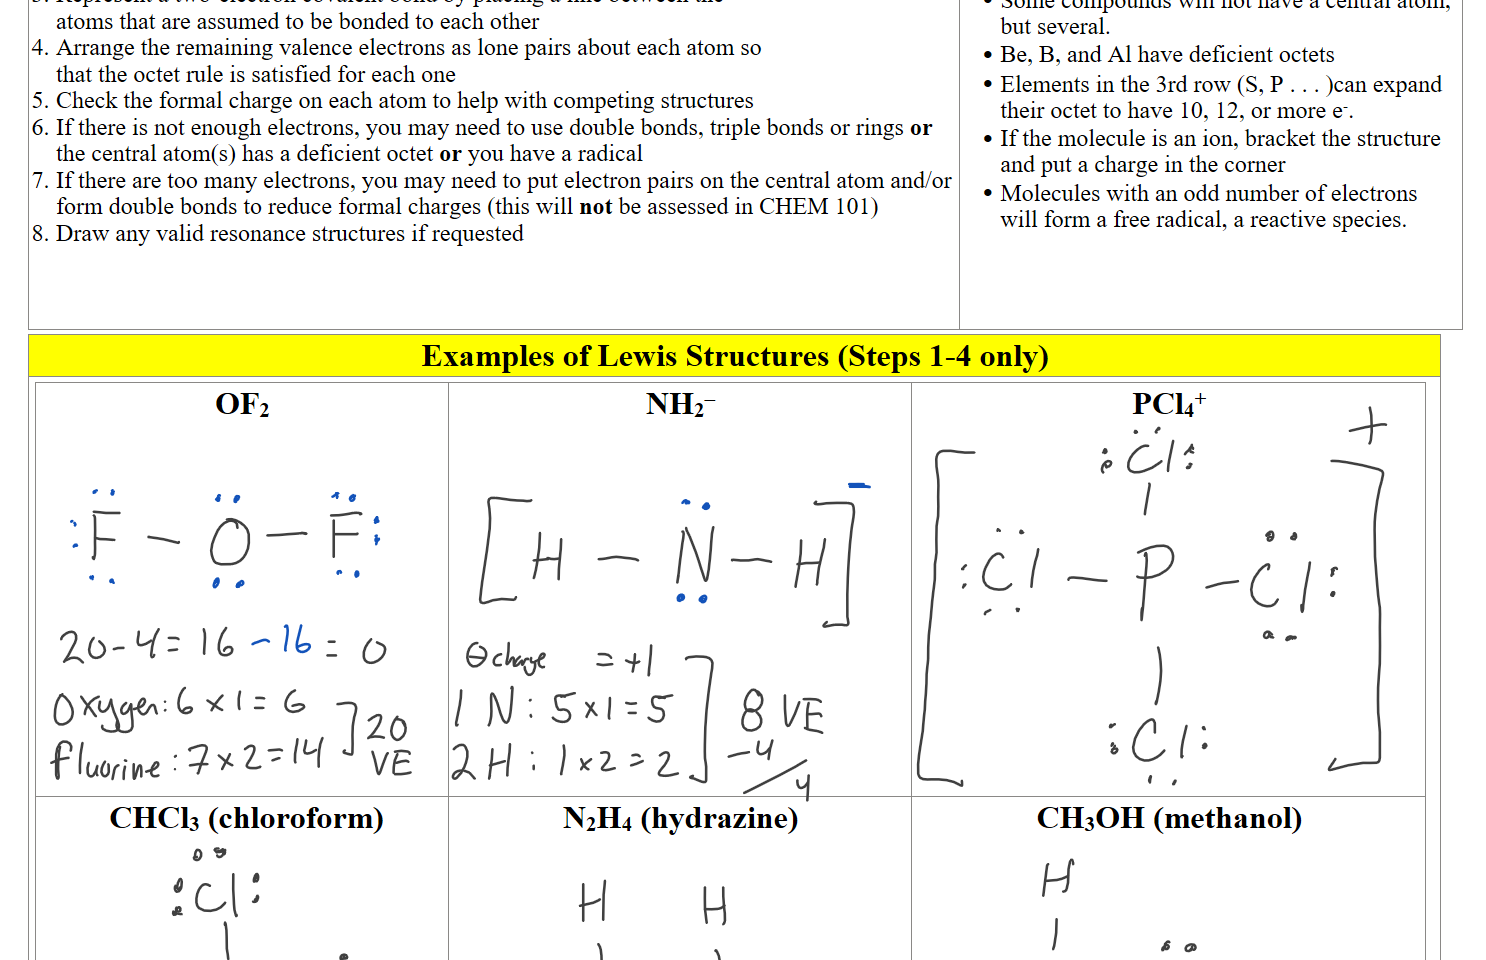 atoms that are assumed to be bonded to each other
4. Arrange the remaining valence electrons as lone pairs about each atom so
that the octet rule is satisfied for each one
5. Check the formal charge on each atom to help with competing structures
6. If there is not enough electrons, you may need to use double bonds, triple bonds or rings or
the central atom(s) has a deficient octet or you have a radical
7. If there are too many electrons, you may need to put electron pairs on the central atom and/or
form double bonds to reduce formal charges (this will not be assessed in CHEM 101)
8. Draw any valid resonance structures if requested
• Some compounds will not have a central atom,
but several.
• Be, B, and Al have deficient octets
• Elements in the 3rd row (S, P . . . )can expand
their octet to have 10, 12, or more e-.
• If the molecule is an ion, bracket the structure
and put a charge in the corner
• Molecules with an odd number of electrons
will form a free radical, a reactive species.
Examples of Lewis Structures (Steps 1-4 only)
OF₂
F – O – F
20-4=16 -16 = 0
Oxygen: 6 x 1 = 6
fluorine: 7 x 2 = 14
] 20
VE
NH₂⁻
[H – N – H]⁻
⊖ charge = +1
1 N: 5 x 1 = 5
2 H: 1 x 2 = 2
] 8 VE
-4
4
PCl₄⁺
+
Cl
Cl – P – Cl
Cl
CHCl₃ (chloroform)
Cl
N₂H₄ (hydrazine)
H H
CH₃OH (methanol)
H